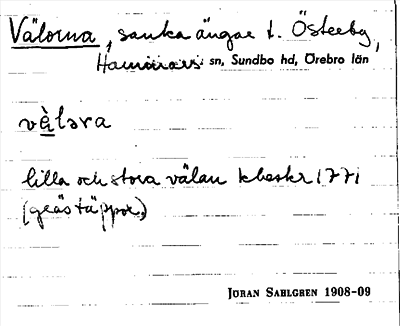 Välorna, sanka ängar t. Österby,
Hammars sn, Sundbo hd, Örebro län
vàləra
lilla och stora välan kbeskr 1771
(gräs täppor)
JÖRAN SAHLGREN 1908-09